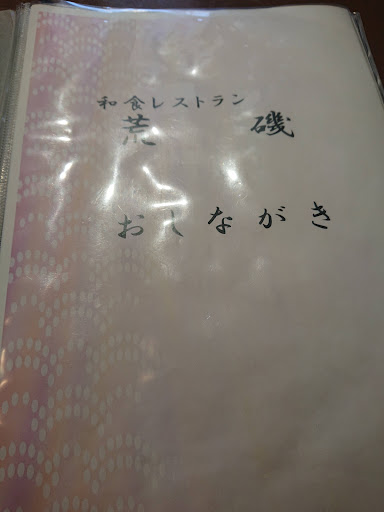 和食レストラン
荒磯
おしながき